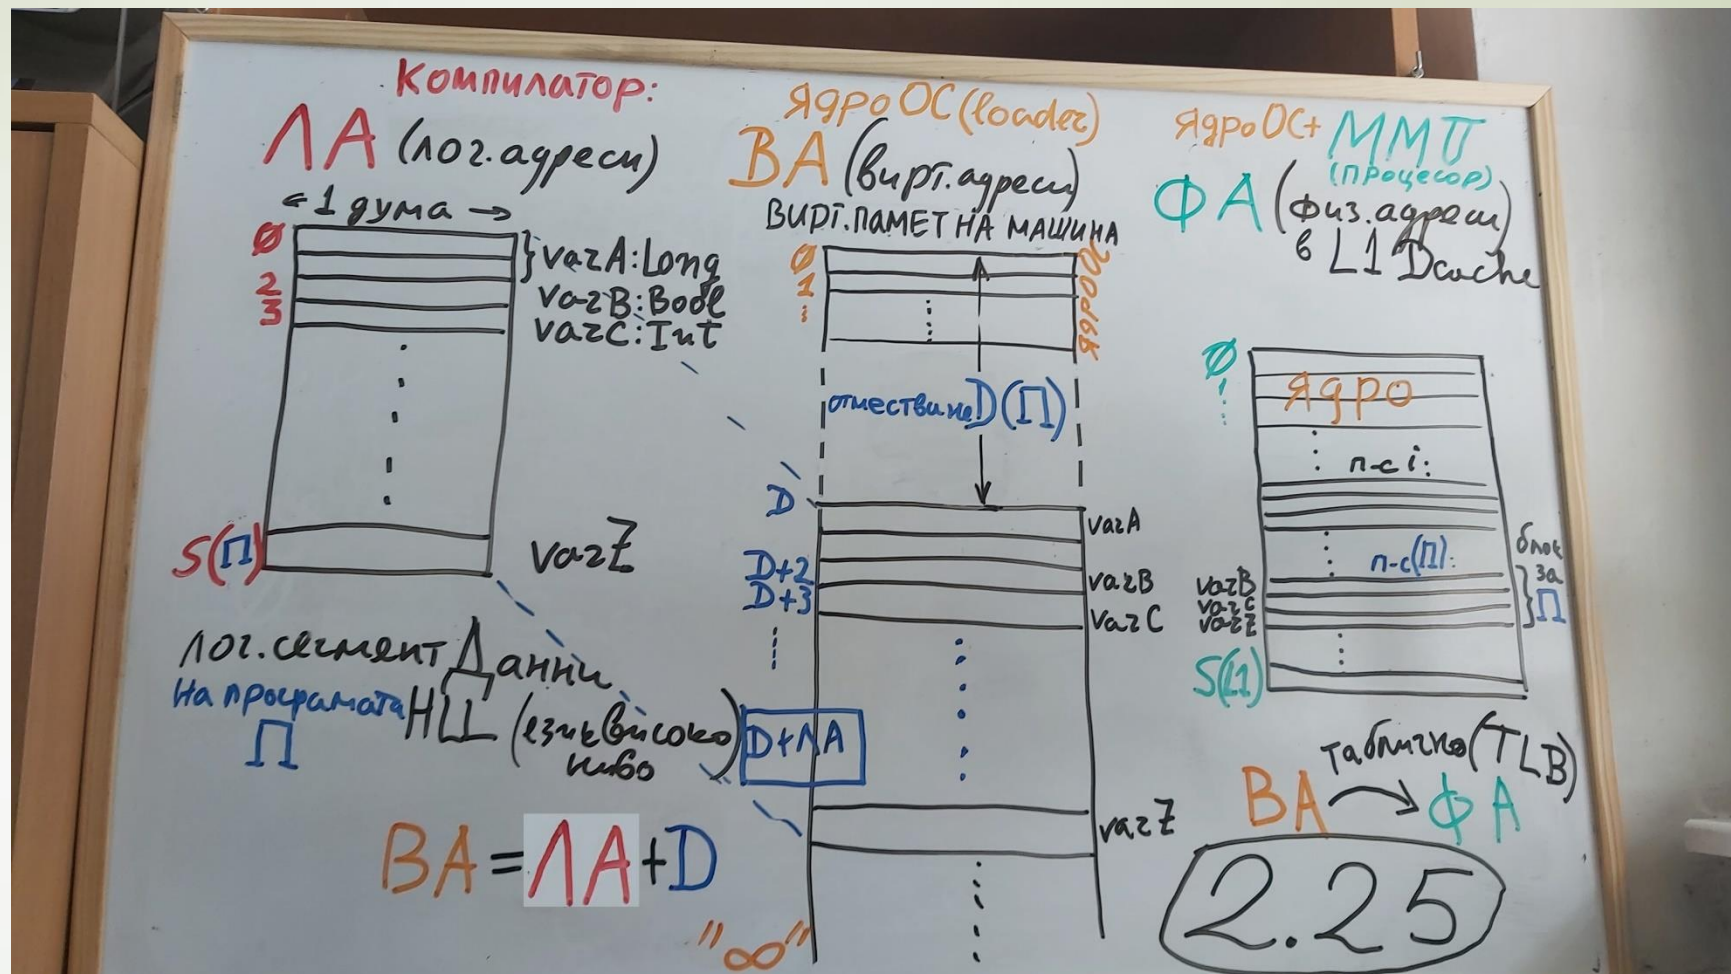 Компилатор:
ЛА (лог.адреси)
← 1 дума →
0
2
3
varA:Long
varB:Bool
varC:Int
S(П)
varZ
лог.сегмент Данни
на програмата HLL (език високо
П
ниво
ВА = ЛА + D
Ядро ОС (loader)
ВА (вирт.адреси)
ВИРТ.ПАМЕТ НА МАШИНА
0
1
отместване D(П)
D
varA
D+2
varB
D+3
varC
D+ЛА
varZ
"∞"
Ядро ОС+ ММП
(процесор)
ФА (физ.адреси)
в L1 Dcache
0
1
Ядро
п-с i:
п-с(П):
блок
за
П
varB
varC
varZ
S(L1)
таблично (TLB)
ВА → ФА
2.25